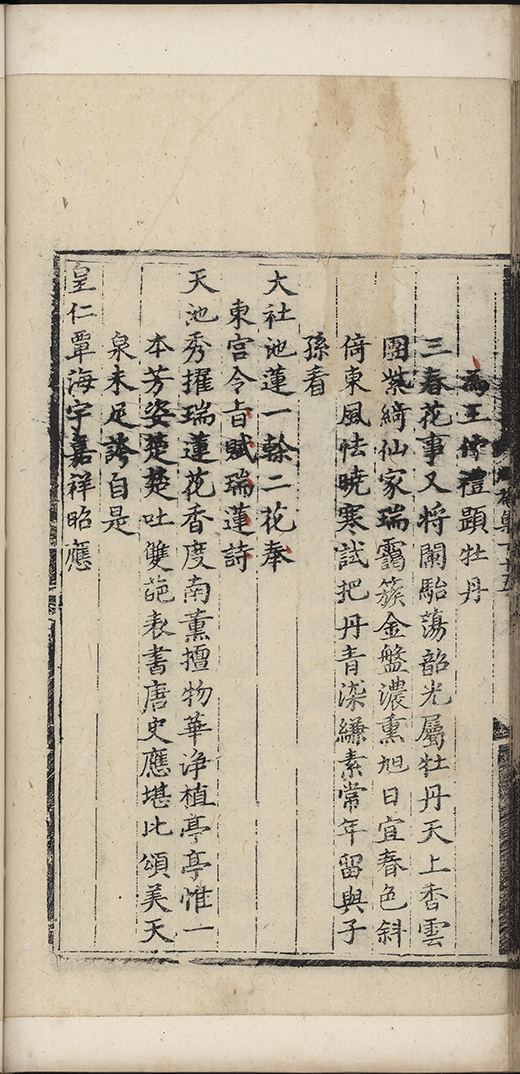 為王侍禮題牡丹
三春花事又將闌駘蕩韶光屬牡丹天上香雲
團紫綺仙家瑞靄簇金盤濃熏旭日宜春色斜
倚東風怯曉寒試把丹青染縑素常年留與子
孫看
大社池蓮一榦二花奉
東宮令旨賦瑞蓮詩
天池秀擢瑞蓮花香度南薰擅物華淨植亭亭惟一
本芳姿楚楚吐雙葩表書唐史應堪比頌美天
泉未足誇自是
皇仁覃海宇嘉祥昭應